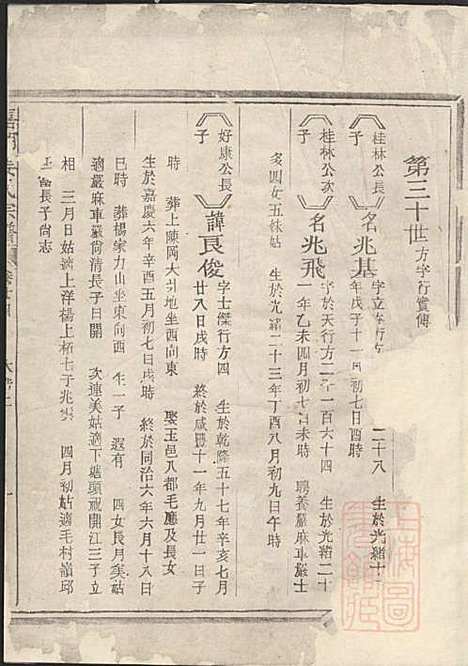 第三十世 方字行實傳
桂林公長子 名兆基 字立 行方 二十八 生於光緒十
年戊子十一月初七日酉時
桂林公次子 名兆飛 字於天行方二 一百六十四 生於光緒二十
一年乙未四月初七 未時 聘養嚴麻車嚴士
多四女五妹姑 生於光緒二十三年丁酉八月初九日午時
好康公長子 諱良俊 字士傑行方四 生於乾隆五十七年辛亥七月
廿八日戌時 終於咸豐十一年九月廿一日子
時 葬上陳岡大引地坐西向東 娶玉邑八都毛廳及長女
生於嘉慶六年辛酉五月初七日戌時 終於同治六年六月十八日
巳時 葬楊家力山坐東向西 生一子 遐有 四女長月矣姑
適嚴麻車嚴尚清長子日開 次連美姑適下塘頭祝開江三子立
相 三月日姑適上洋楊上楁七子兆 四月初姑適毛村嶺邱
長子尚志
氏宗譜
上海圖